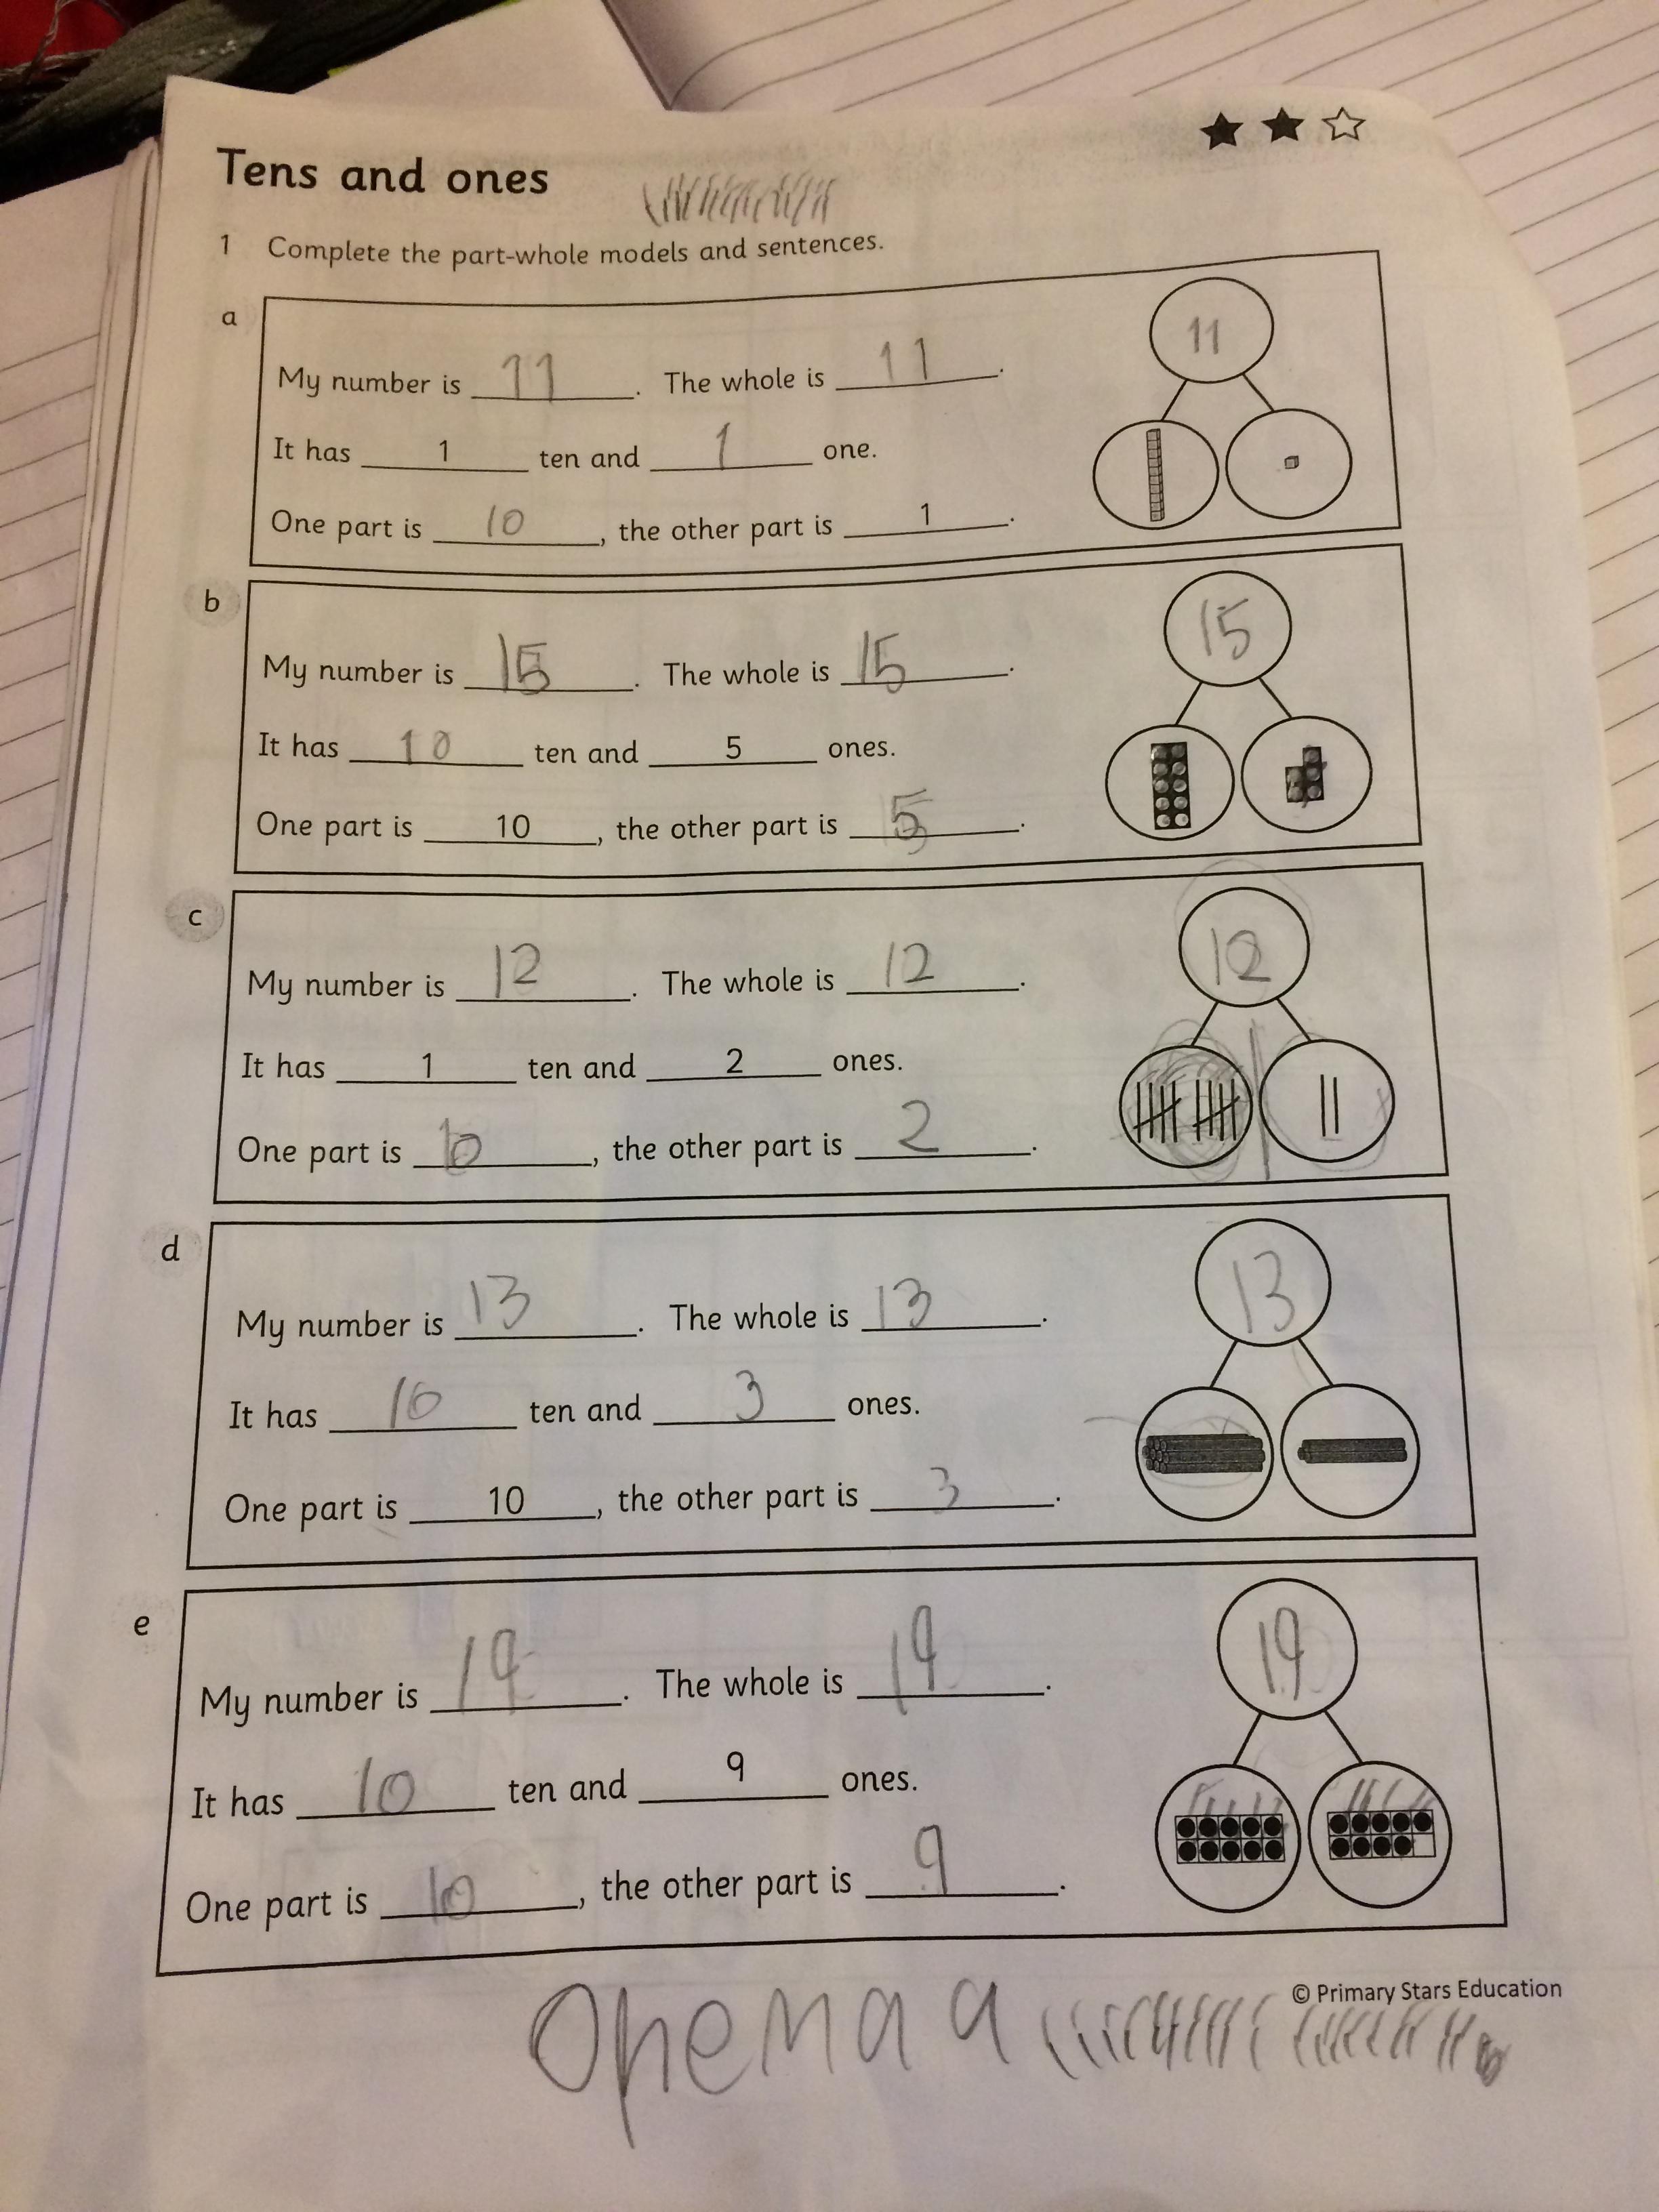 Tens and ones
1 Complete the part-whole models and sentences.
a
11
My number is 11. The whole is 11.
It has 1 ten and 1 one.
One part is 10, the other part is 1.
b
15
My number is 15. The whole is 15.
It has 10 ten and 5 ones.
One part is 10, the other part is 5.
c
12
My number is 12. The whole is 12.
It has 1 ten and 2 ones.
One part is 10, the other part is 2.
d
13
My number is 13. The whole is 13.
It has 10 ten and 3 ones.
One part is 10, the other part is 3.
e
19
My number is 19. The whole is 19.
It has 10 ten and 9 ones.
One part is 10, the other part is 9.
© Primary Stars Education